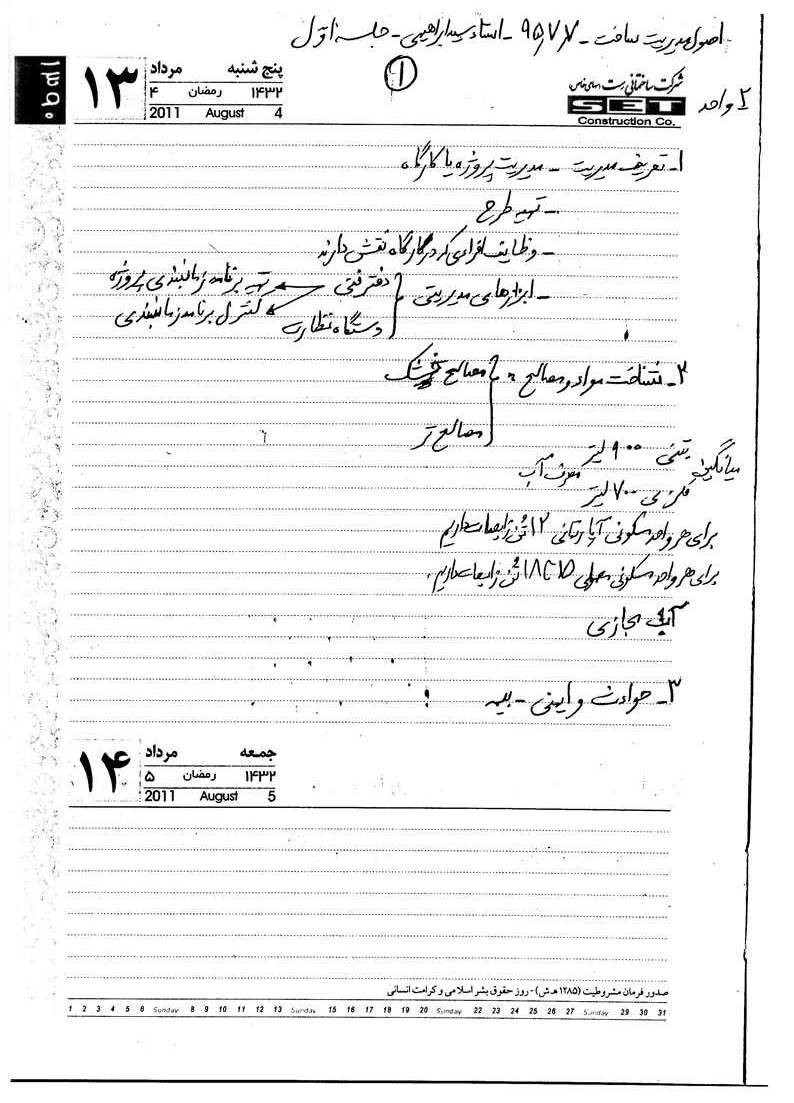 اصول مدیریت ساخت - ۹۵,۷,۷ - استاد سید ابراهیمی - جلسه اوّل
۱
۲ واحد
۱۳۹۰
۱۳
پنج شنبه مرداد
۱۴۳۲ رمضان ۴
2011 August 4
شرکت ساختمانی
SET
Construction Co.
۱- تعریف مدیریت - مدیریت پروژه یا کارگاه
- تهیه طرح
- وظایف افرادی که در کارگاه نقش دارند
- ابزارهای مدیریتی
دفتر فنی
تهیه برنامه زمانبندی پروژه
کنترل برنامه زمانبندی
دستگاه نظارت
۲- شناخت مواد و مصالح :
مصالح خشک
مصالح تر
میانگین
بتنی ۹۰۰ لیتر
مصرف آب
فلزی ۷۰۰ لیتر
برای هر واحد مسکونی آپارتمانی ۱۲ تُن ضایعات داریم
برای هر واحد مسکونی معمولی ۱۵ تا ۱۸ تُن ضایعات داریم.
آب مجازی
۳- حوادث و ایمنی - بیمه
۱۴
جمعه مرداد
۱۴۳۲ رمضان ۵
2011 August 5
صدور فرمان مشروطیت (۱۲۸۵ هـ.ش) - روز حقوق بشر اسلامی و کرامت انسانی
1 2 3 4 5 6 Sunday 8 9 10 11 12 13 Sunday 15 16 17 18 19 20 Sunday 22 23 24 25 26 27 Sunday 29 30 31